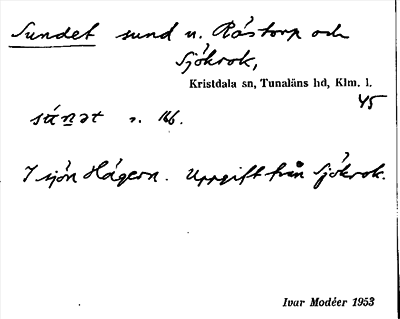 Sundet sund n. Råstorp och
Sjökrok,
Kristdala sn, Tunaläns hd, Klm. l.
45
sɯ́n̲ət s. 166.
I sjön Hågern. Uppgift från Sjökrok.
Ivar Modéer 1953